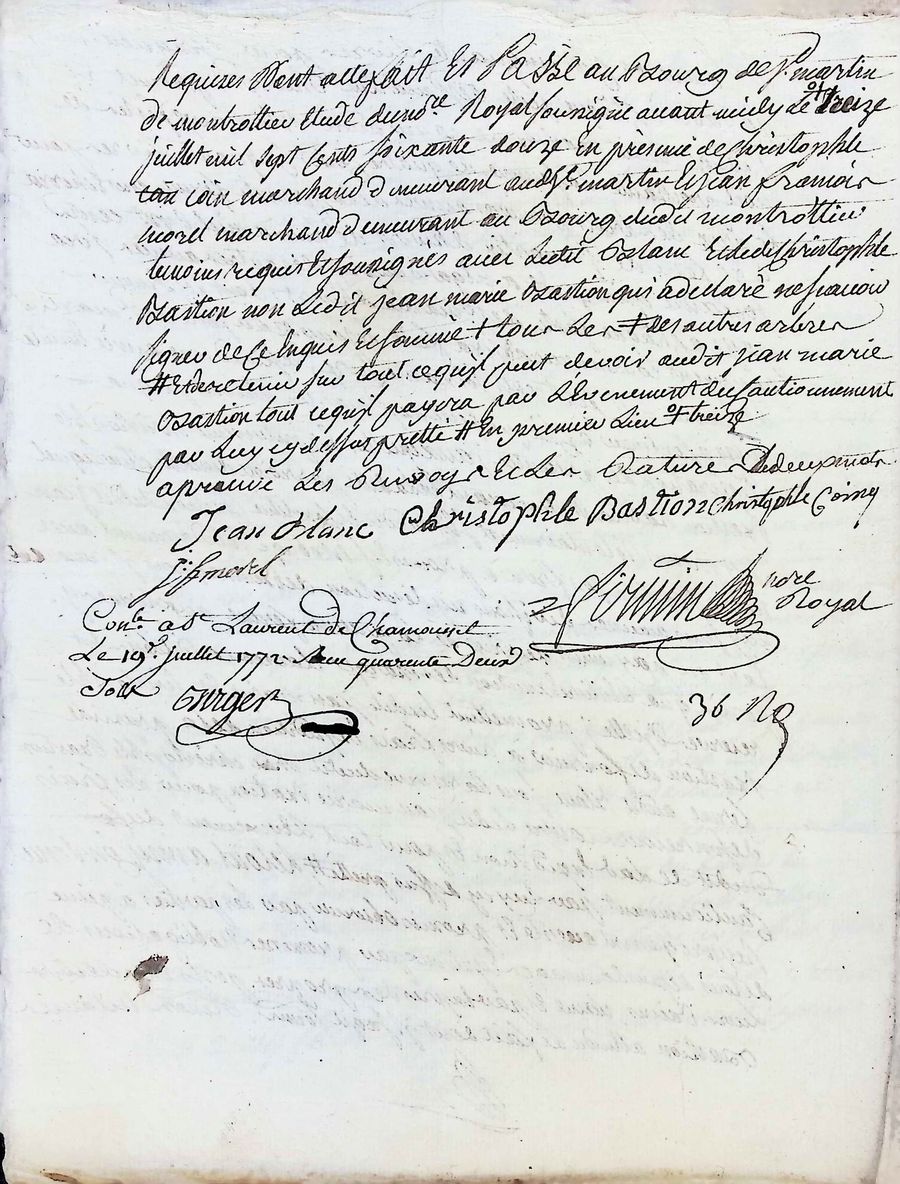 Requises Dont acte fait Et Passé au Bourg de St. martin
de montrottier Etude du nore Royal soussigné avant midy Le treize
juillet mil sept Cents soixante douze En présence de Christophle
coin marchand demeurant audt St. martin Et jean françois
morel marchand demeurant au Bourg dudit montrottier
temoins requis Et soussignés avec Ledit Blanc Et ledt Christophle
Bastion non Ledit jean marie Bastion qui a declaré ne sçavoir
signer de Ce Enquis Et sommé + tous Les + des autres arbres
# Et de retenir sur tout ce qu'il peut devoir audit jean marie
Bastion tout ce qu'il payera par L'Evenement du Cautionnement
par Luy cy dessus pretté # En premier Lieu + treize
aprouvé Les Renvoys Et Les Rature De deux mots
Jean Blanc Christophle Bastion Christophle Coing
j. f. morel
nore
Royal
Conlé a St Laurent de Chamousset
Le 19e. juillet 1772 Reçu quarente Deux
Sols
36